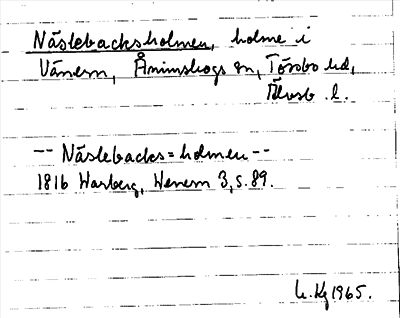 Näslebacksholmen, holme i
Vänern, Ånimskogs sn, Tössbo hd,
Älvsb. l.
-- Näslebacks=holmen --
1816 Warberg, Wenern 3, s. 89.
1965.